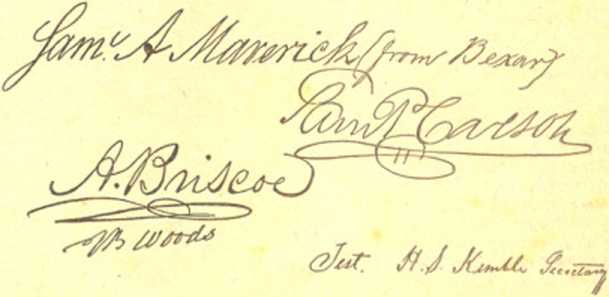 Saml. A Maverick (from Bexar)
Sam P Carson
A. Briscoe
JB Woods
Test. H. S. Kemble Secretary